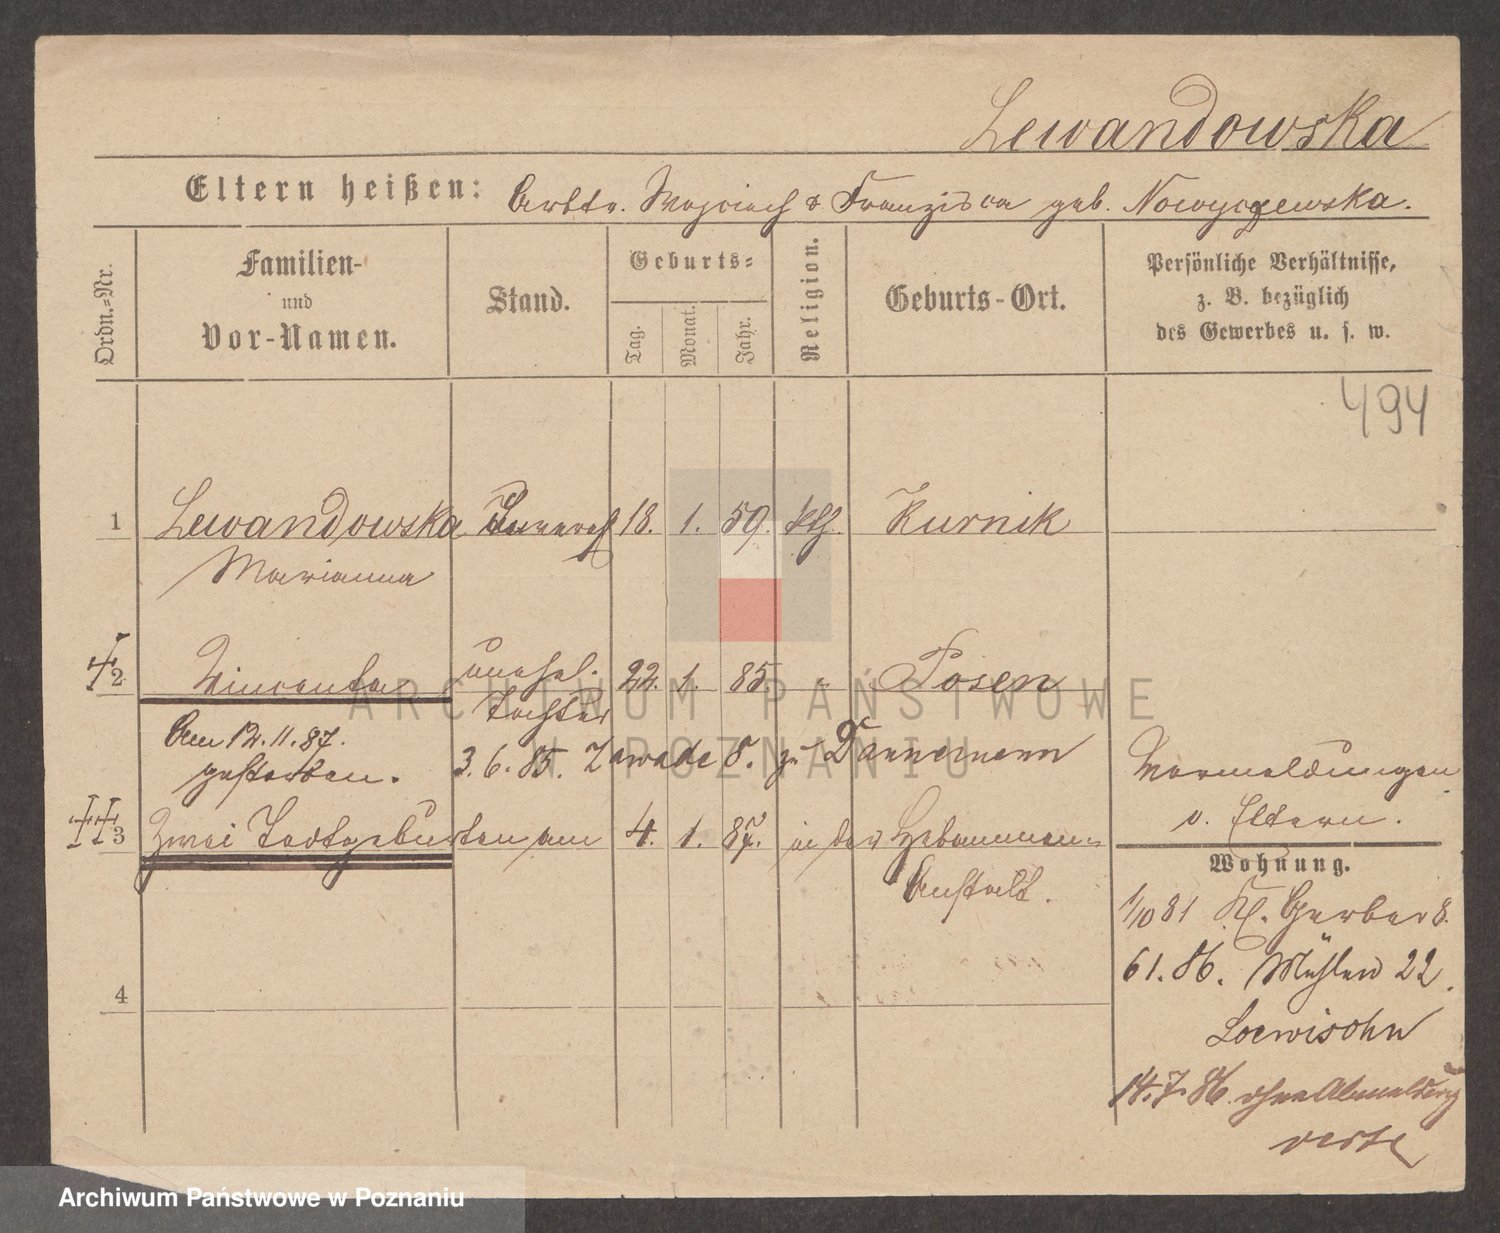 Lewandowska
Eltern heißen: Arbtr. Wojciech & Franziska geb. Nowyczewska.
Ordn.=Nr.
Familien-
und
Vor-Namen.
Stand.
Geburts=
Tag.
Monat.
Jahr.
Religion.
Geburts-Ort.
Persönliche Verhältnisse,
z. B. bezüglich
des Gewerbes u. s. w.
494
1 Lewandowska 18. 1. 59. kth. Kurnik
Marianna
2 Vincenta unehel. 22. 1. 85. " Posen
Tochter
Am 12. 11. 87.
gestorben.
3. 6. 85. Zawade 8. zu Dannemann
Vormeldungen
v. Eltern.
3 Zwei Todtgeburten am 4. 1. 87. in der Hebammen=
Anstalt.
Wohnung.
1/10 81 Kl. Gerber 8.
61. 86. Mühlen 22.
Loewisohn
14. 7. 86. ohne Abmeldung
4
ARCHIWUM PAŃSTWOWE
W POZNANIU
Archiwum Państwowe w Poznaniu